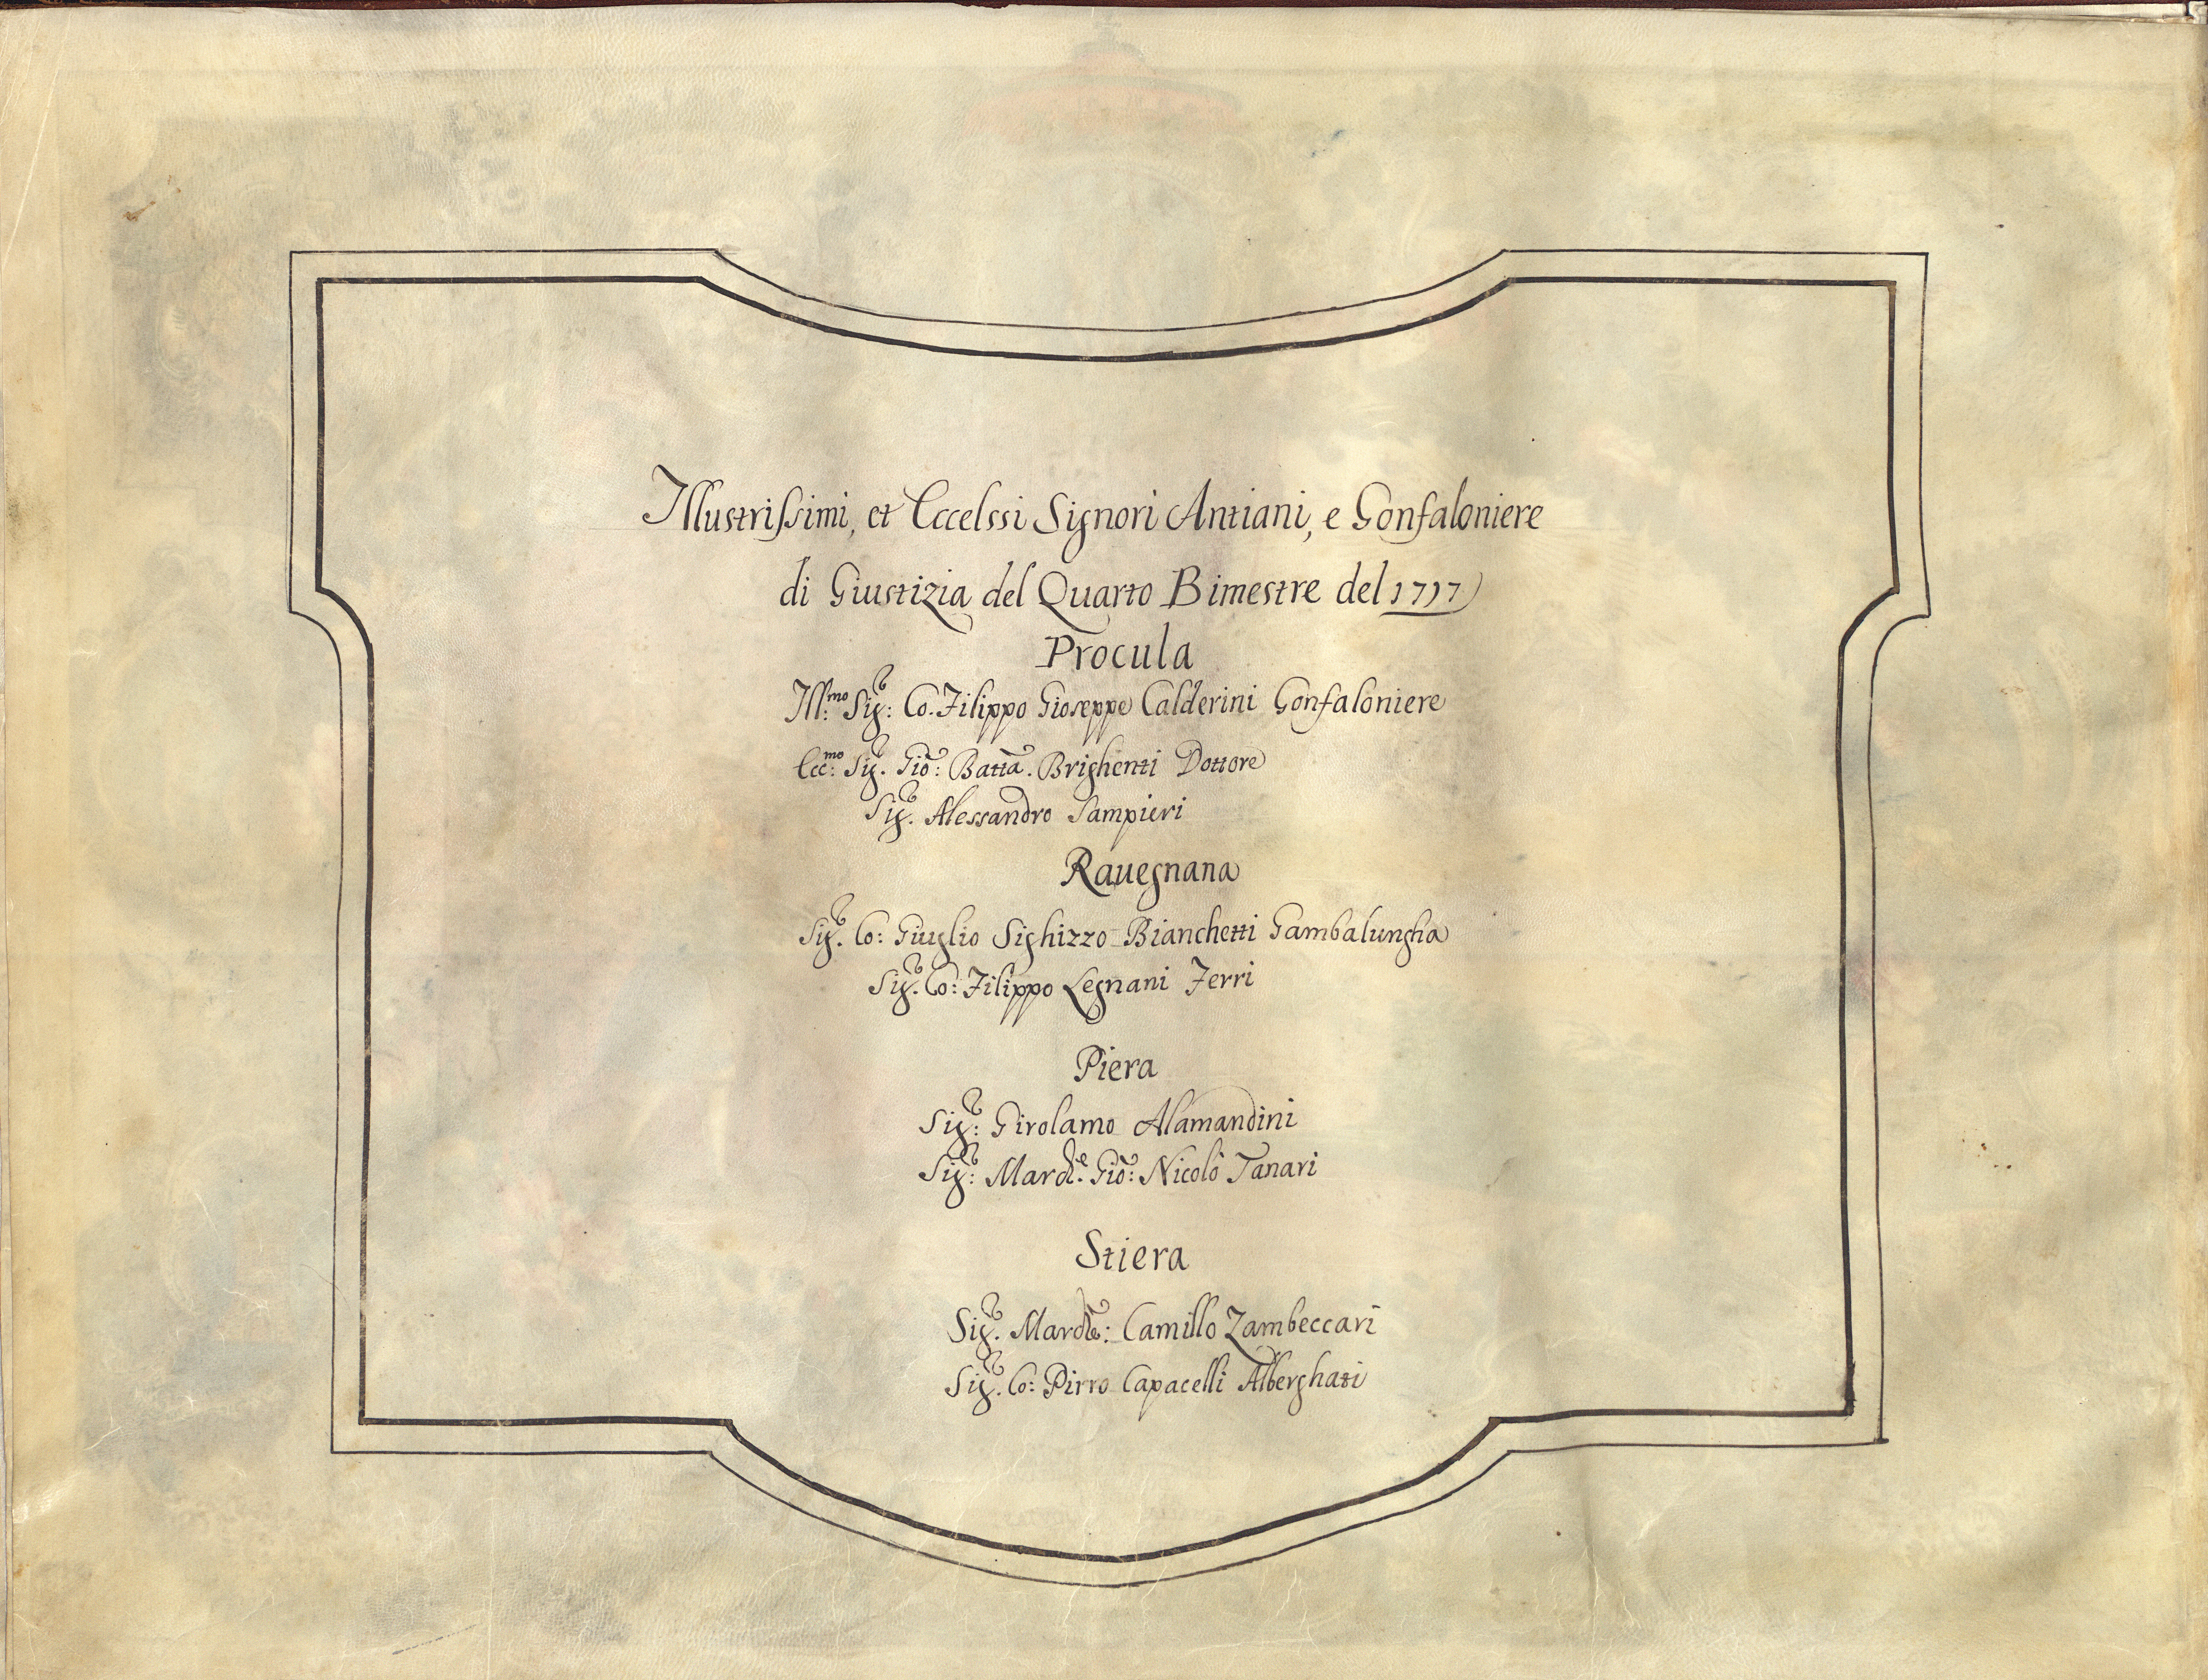 Illustrissimi, et Eccelssi Signori Antiani, e Gonfaloniere
di Giustizia del Quarto Bimestre del 1717
Procula
Ill:mo Sig:r Co. Filippo Gioseppe Calderini Gonfaloniere
Ecc:mo Sig.r Gio: Batta. Brighenti Dottore
Sig.r Alessandro Sampieri
Rauegnana
Sig.r Co: Giuglio Sighizzo Bianchetti Gambalungha
Sig.r Co: Filippo Legnani Ferri
Piera
Sig:r Girolamo Alamandini
Sig:r March.e Gio: Nicolò Tanari
Stiera
Sig.r March: Camillo Zambeccari
Sig.r Co: Pirro Capacelli Alberghati